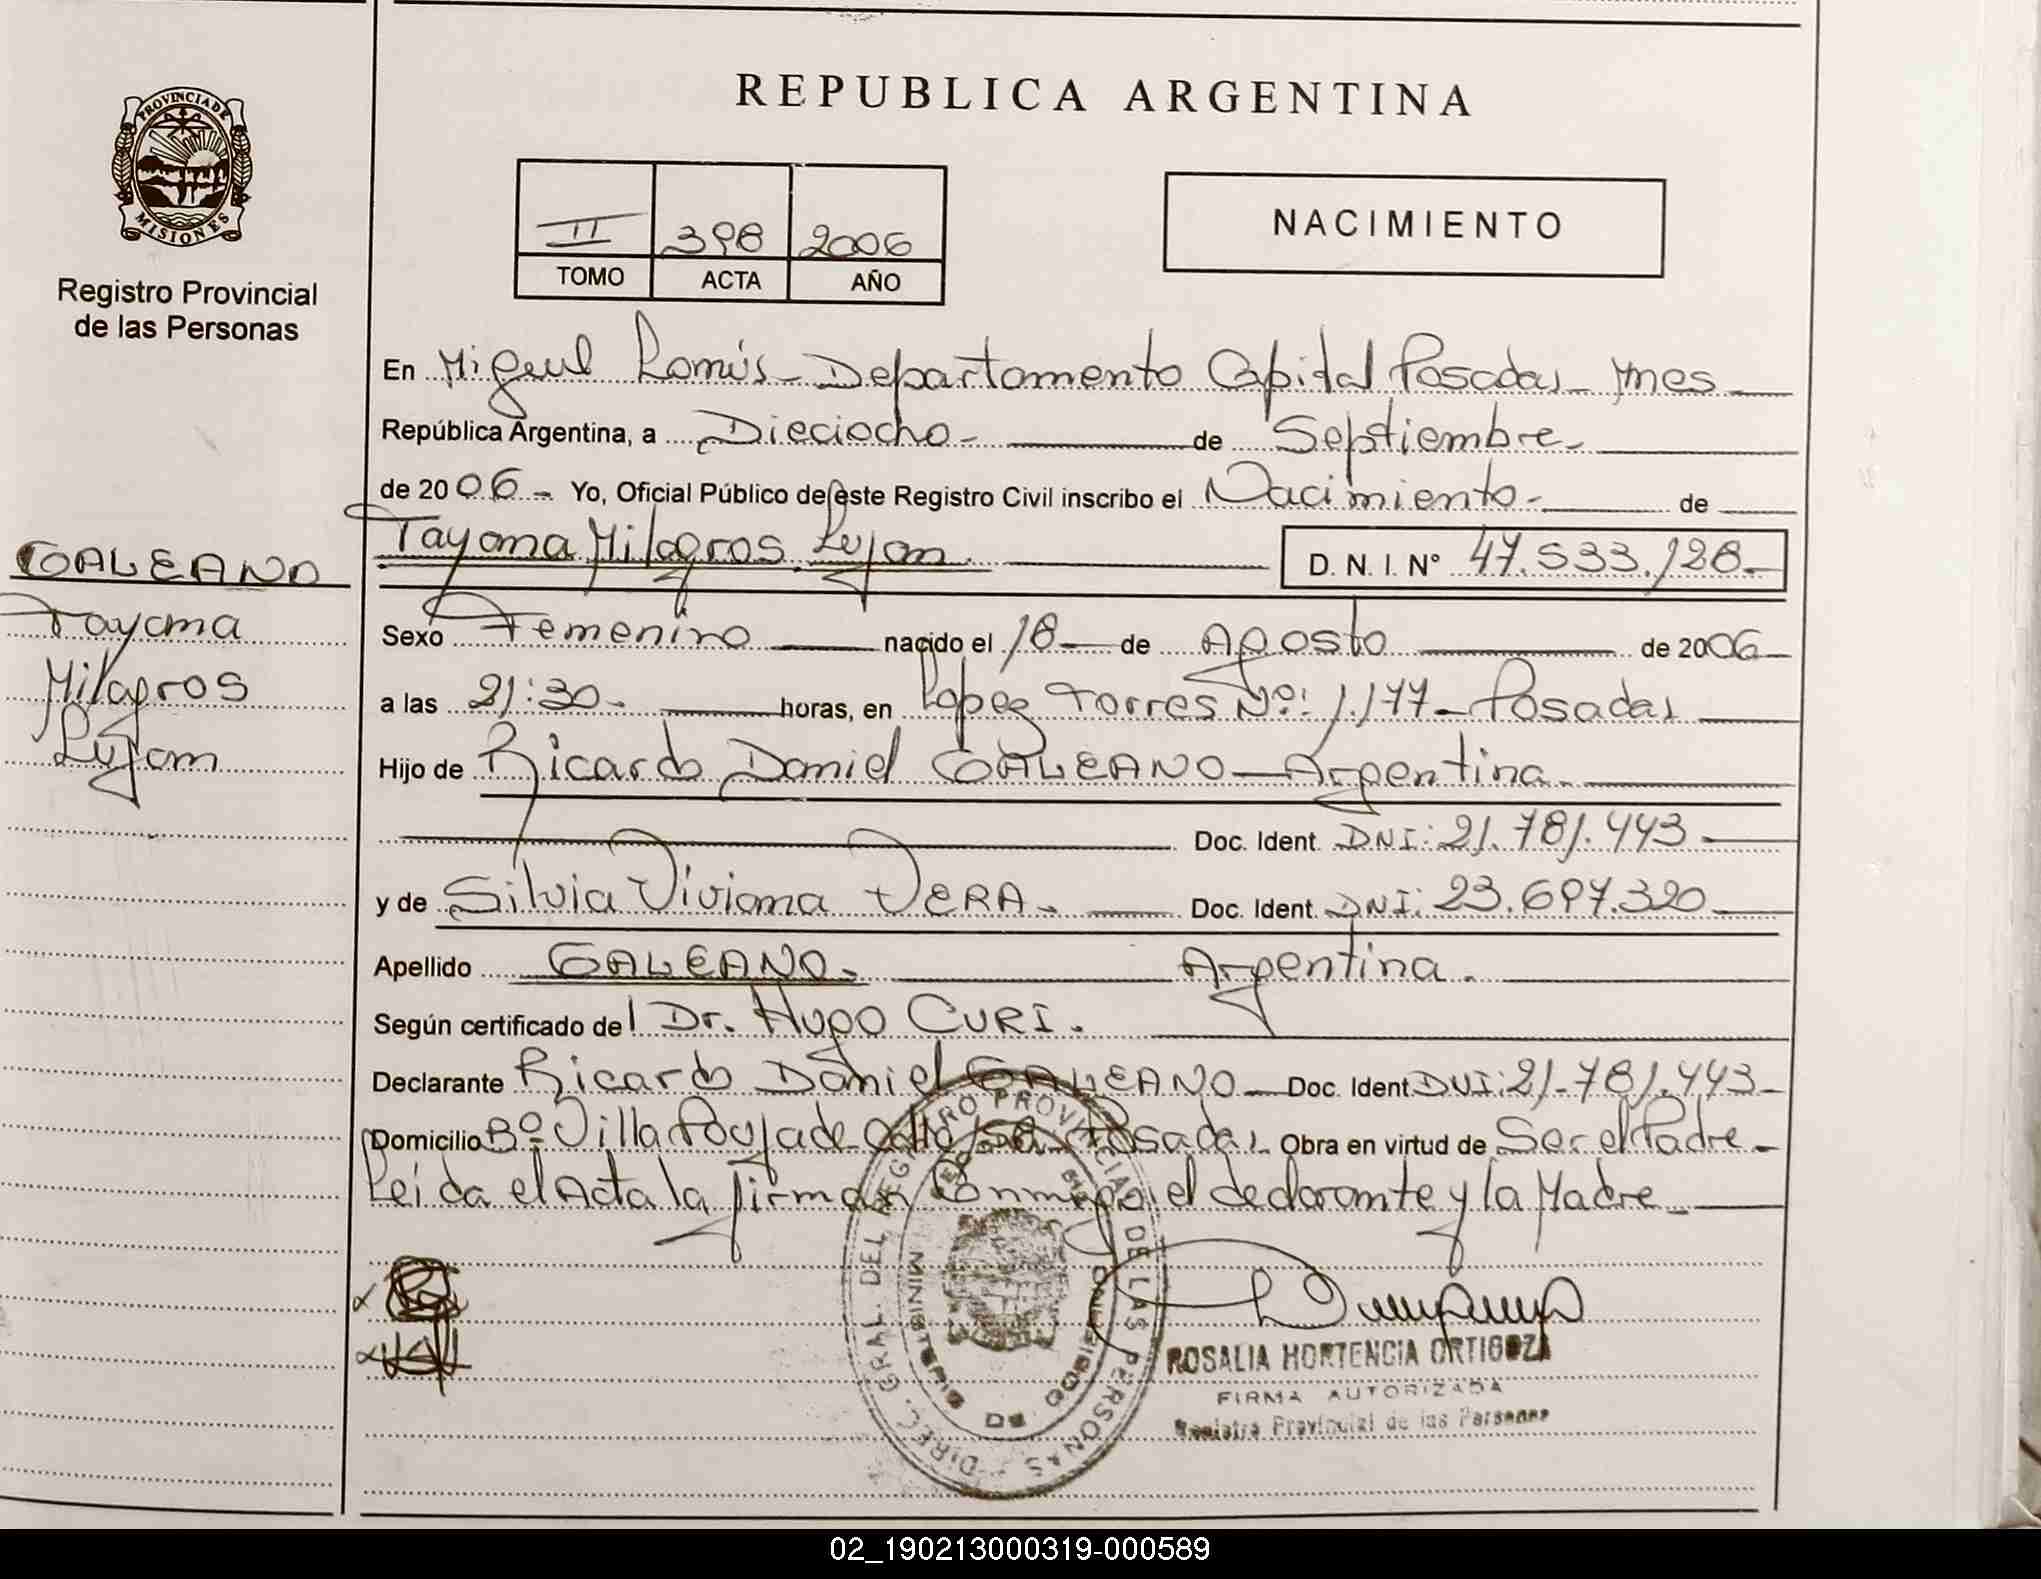 REPUBLICA ARGENTINA
PROVINCIA DE
MISIONES
Registro Provincial
de las Personas
II 398 2006
TOMO ACTA AÑO
NACIMIENTO
En Miguel Lanús - Departamento Capital Posadas - Mnes
República Argentina, a Dieciocho - de Septiembre -
de 2006 - Yo, Oficial Público de este Registro Civil inscribo el Nacimiento - de
Tayana Milagros Lujan D. N. I. N° 47.533.128 -
GALEANO
Tayana
Milagros
Lujan
Sexo Femenino nacido el 18 de Agosto de 2006
a las 21:30 - horas, en Lopez Torres Nº: 1.177 - Posadas
Hijo de Ricardo Daniel GALEANO - Argentina -
Doc. Ident. DNI: 21.781.443
y de Silvia Viviana VERA - Doc. Ident. DNI: 23.697.320
Apellido GALEANO - Argentina .
Según certificado del Dr. Hugo CURI .
Declarante Ricardo Daniel GALEANO - Doc. Ident DNI: 21.781.443 -
Domicilio Bº Villa Poujade Posadas Obra en virtud de Ser el Padre -
Leida el Acta la firman Conmigo el declarante y la Madre
DIREC. GRAL. DEL REGISTRO PROVINCIAL DE LAS PERSONAS
MINISTERIO DE
ROSALIA HORTENCIA ORTIGOZA
FIRMA AUTORIZADA
Registro Provincial de las Personas
02_190213000319-000589